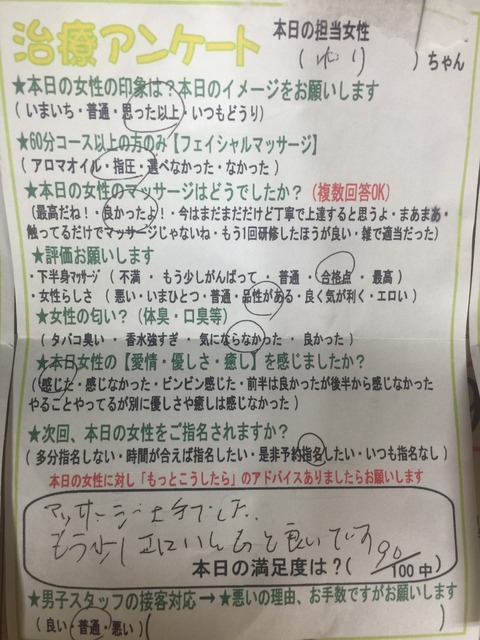 治療アンケート
本日の担当女性
( ゆり )ちゃん
★本日の女性の印象は?本日のイメージをお願いします
( いまいち・普通・思った以上・いつもどうり)
★60分コース以上の方のみ【フェイシャルマッサージ】
( アロマオイル・指圧・選べなかった・なかった )
★本日の女性のマッサージはどうでしたか? (複数回答OK)
(最高だね!・良かったよ!・今はまだまだだけど丁寧で上達すると思うよ・まあまあ・
触ってるだけでマッサージじゃないね・もう1回研修したほうが良い・雑で適当だった)
★評価お願いします
・下半身マッサージ ( 不満 ・ もう少しがんばって ・ 普通 ・ 合格点 ・ 最高 )
・女性らしさ ( 悪い・いまひとつ・普通・品性がある・良く気が利く・エロい )
★女性の匂い? (体臭・口臭等)
( タバコ臭い ・ 香水強すぎ ・ 気にならなかった ・ 良かった )
★本日女性の【愛情・優しさ・癒し】を感じましたか?
(感じた・感じなかった・ビンビン感じた・前半は良かったが後半から感じなかった
やることやってるが別に優しさや癒しは感じなかった )
★次回、本日の女性をご指名されますか?
( 多分指名しない・時間が合えば指名したい・是非予約指名したい・いつも指名なし )
本日の女性に対し「もっとこうしたら」のアドバイスありましたらお願いします
マッサージ上手でした、
もう少し エロいともっと良いです
本日の満足度は?( 90/100中)
★男子スタッフの接客対応→★悪いの理由、お手数ですがお願いします
( 良い・普通・悪い )( )